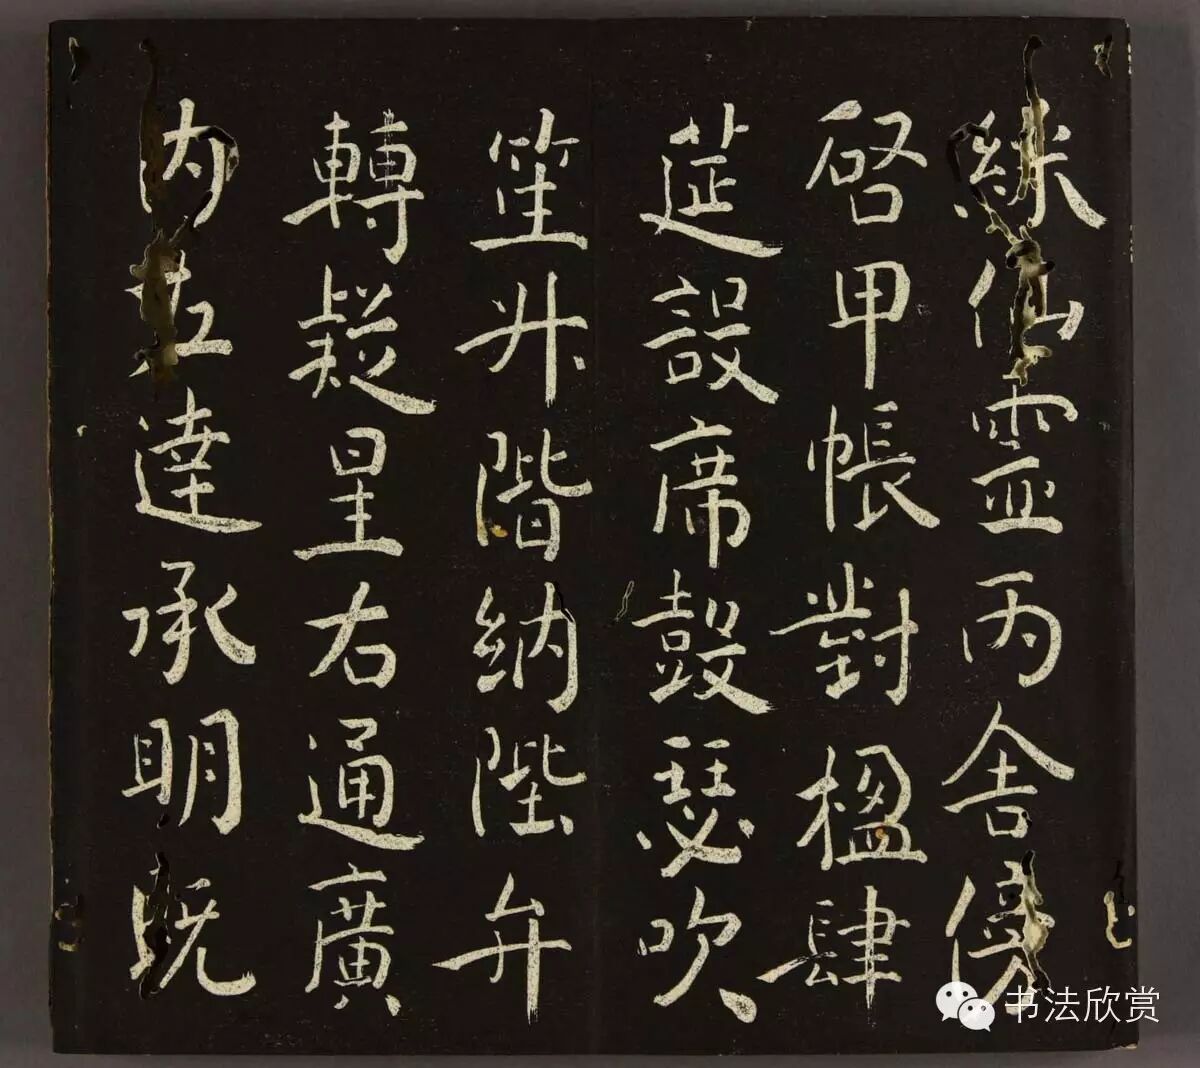 綵仙靈丙舍傍
啓甲帳對楹肆
筵設席鼓瑟吹
笙升階納陛弁
轉疑星右通廣
内左達承明既
书法欣赏